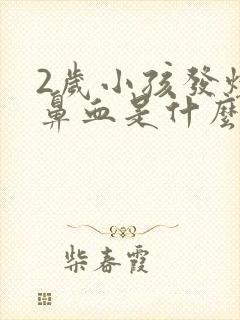 2歲小孩發燒
鼻血是什麼
柴春霞